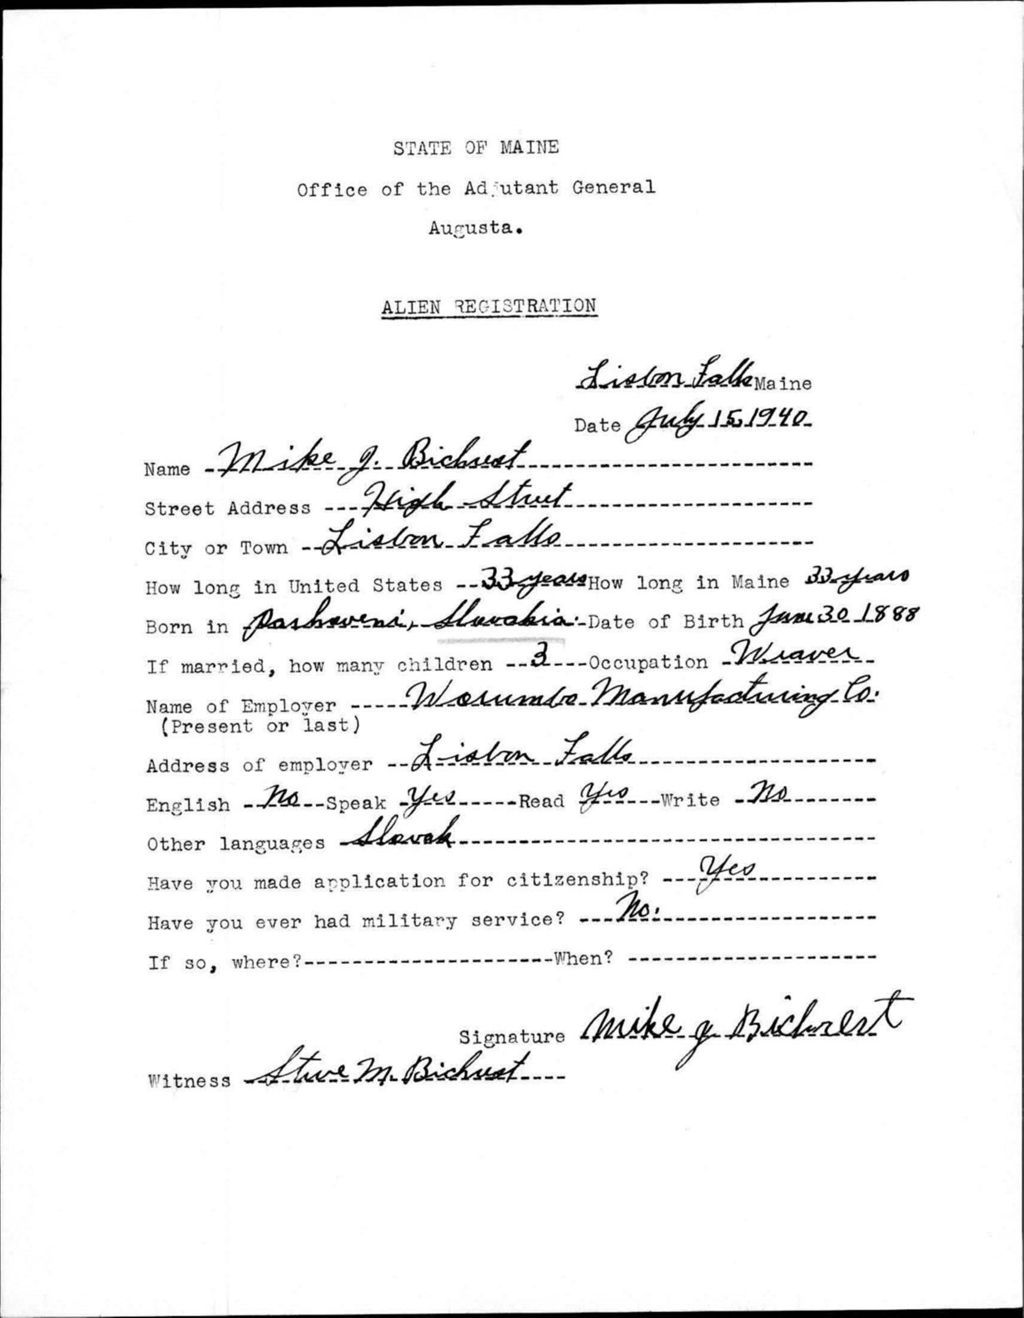 STATE OF MAINE
Office of the Adjutant General
Augusta.
ALIEN REGISTRATION
Lisbon Falls Maine
Date July 15, 1940
Name Mike J. Bichrest
Street Address High Street
City or Town Lisbon Falls
How long in United States 33 years How long in Maine 33 years
Born in Slovakia. Date of Birth June 30 1888
If married, how many children 3 Occupation Weaver
Name of Employer Worumbo Manufacturing Co.
(Present or last)
Address of employer Lisbon Falls
English No Speak Yes Read Yes Write No
Other languages Slovak
Have you made application for citizenship? Yes
Have you ever had military service? No.
If so, where? When?
Signature Mike J Bichrest
Witness Steve M. Bichrest